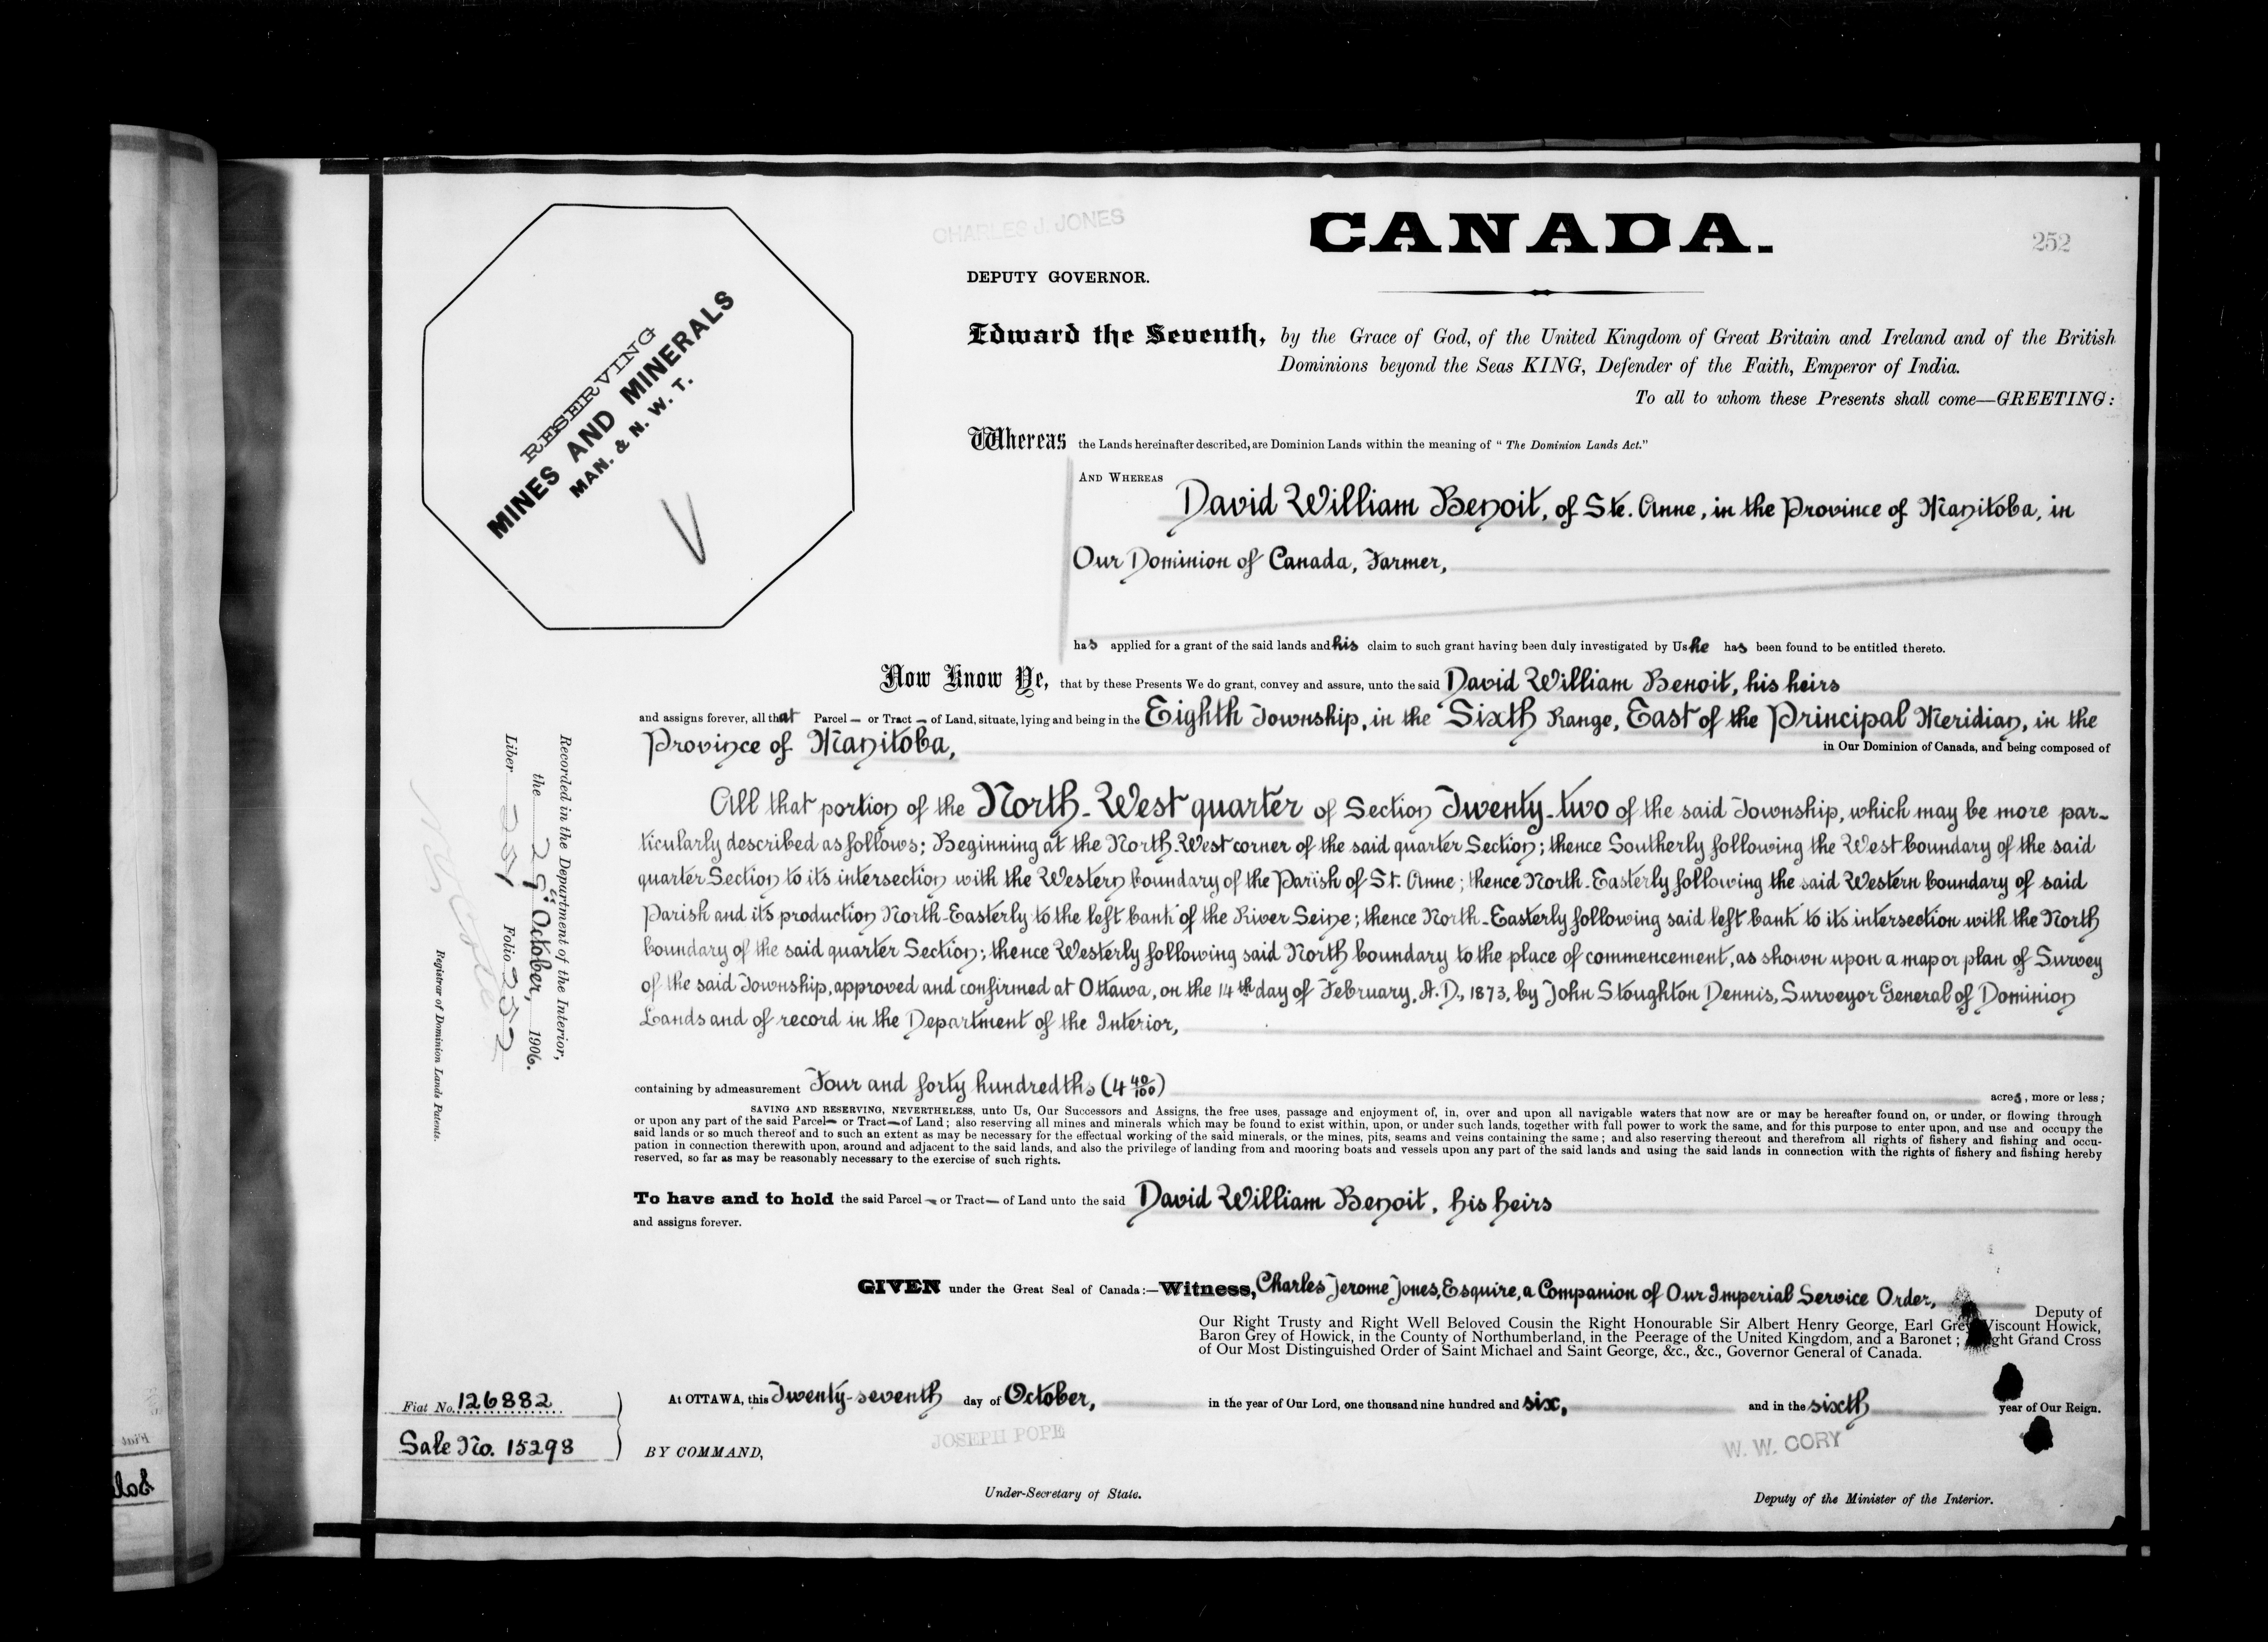 CHARLES J. JONES
CANADA.
252
DEPUTY GOVERNOR.
RESERVING
MINES AND MINERALS
MAN. & N. W. T.
Edward the Seventh, by the Grace of God, of the United Kingdom of Great Britain and Ireland and of the British
Dominions beyond the Seas KING, Defender of the Faith, Emperor of India.
To all to whom these Presents shall come—GREETING:
Whereas the Lands hereinafter described, are Dominion Lands within the meaning of "The Dominion Lands Act."
AND WHEREAS
David William Benoit, of Ste. Anne, in the Province of Manitoba, in
Our Dominion of Canada, Farmer,
has applied for a grant of the said lands and his claim to such grant having been duly investigated by Us he has been found to be entitled thereto.
Now Know Ye, that by these Presents We do grant, convey and assure, unto the said David William Benoit, his heirs
and assigns forever, all that Parcel — or Tract — of Land, situate, lying and being in the Eighth Township, in the Sixth Range, East of the Principal Meridian, in the
Province of Manitoba, in Our Dominion of Canada, and being composed of
All that portion of the North-West quarter of Section Twenty-two of the said Township, which may be more par-
ticularly described as follows; Beginning at the North-West corner of the said quarter Section; thence Southerly following the West boundary of the said
quarter Section to its intersection with the Western boundary of the Parish of St. Anne; thence North-Easterly following the said Western boundary of said
Parish and its production North-Easterly to the left bank of the River Seine; thence North-Easterly following said left bank to its intersection with the North
boundary of the said quarter Section; thence Westerly following said North boundary to the place of commencement, as shown upon a map or plan of Survey
of the said Township, approved and confirmed at Ottawa, on the 14th day of February, A.D., 1873, by John Stoughton Dennis, Surveyor General of Dominion
Lands and of record in the Department of the Interior,
containing by admeasurement Four and forty hundredths (4 40/100) acres, more or less;
SAVING AND RESERVING, NEVERTHELESS, unto Us, Our Successors and Assigns, the free uses, passage and enjoyment of, in, over and upon all navigable waters that now are or may be hereafter found on, or under, or flowing through
or upon any part of the said Parcel— or Tract— of Land; also reserving all mines and minerals which may be found to exist within, upon, or under such lands, together with full power to work the same, and for this purpose to enter upon, and use and occupy the
said lands or so much thereof and to such an extent as may be necessary for the effectual working of the said minerals, or the mines, pits, seams and veins containing the same; and also reserving thereout and therefrom all rights of fishery and fishing and occu-
pation in connection therewith upon, around and adjacent to the said lands, and also the privilege of landing from and mooring boats and vessels upon any part of the said lands and using the said lands in connection with the rights of fishery and fishing hereby
reserved, so far as may be reasonably necessary to the exercise of such rights.
To have and to hold the said Parcel — or Tract — of Land unto the said David William Benoit, his heirs
and assigns forever.
GIVEN under the Great Seal of Canada:—Witness, Charles Jerome Jones, Esquire, a Companion of Our Imperial Service Order,
Deputy of
Our Right Trusty and Right Well Beloved Cousin the Right Honourable Sir Albert Henry George, Earl Grey Viscount Howick,
Baron Grey of Howick, in the County of Northumberland, in the Peerage of the United Kingdom, and a Baronet; ght Grand Cross
of Our Most Distinguished Order of Saint Michael and Saint George, &c., &c., Governor General of Canada.
At OTTAWA, this Twenty-seventh day of October, in the year of Our Lord, one thousand nine hundred and six, and in the sixth year of Our Reign.
Fiat No. 126882
Sale No. 15298
BY COMMAND,
JOSEPH POPE
W. W. CORY
Under-Secretary of State.
Deputy of the Minister of the Interior.
Recorded in the Department of the Interior,
the October, 1906.
Liber Folio 252
Registrar of Dominion Lands Patents.